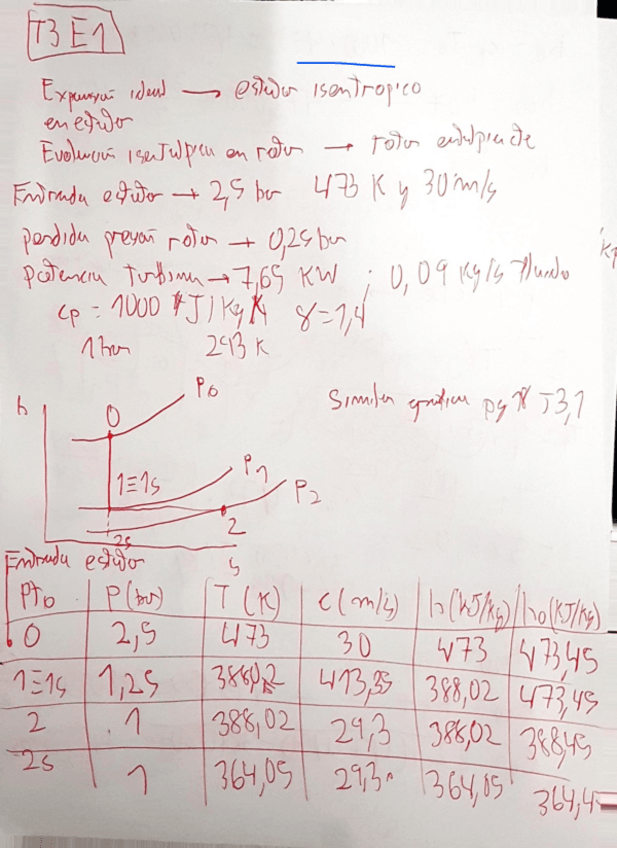 T3 E1
Expansión ideal → estator isentropico
en estator
Evolución isentalpica en rotor → rotor entalpia cte
Entrada estator → 2,5 bar 473 K y 30 m/s
perdida presión rotor → 0,25 bar
potencia turbina → 7,65 KW ; 0,09 Kg/s fluido
cp = 1000 J/Kg K γ=1,4
1 bar 293 K
Similar grafica pg T3,1
h
P0
0
1≡1s
P1
P2
2
2s
s
Entrada estator
Pto P(bar) T(K) c(m/s) h(KJ/Kg) h0(KJ/Kg)
0 2,5 473 30 473 473,45
1≡1s 1,25 388,02 413,35 388,02 473,45
2 1 388,02 29,3 388,02 388,45
2s 1 364,05 29,3 364,05 364,4